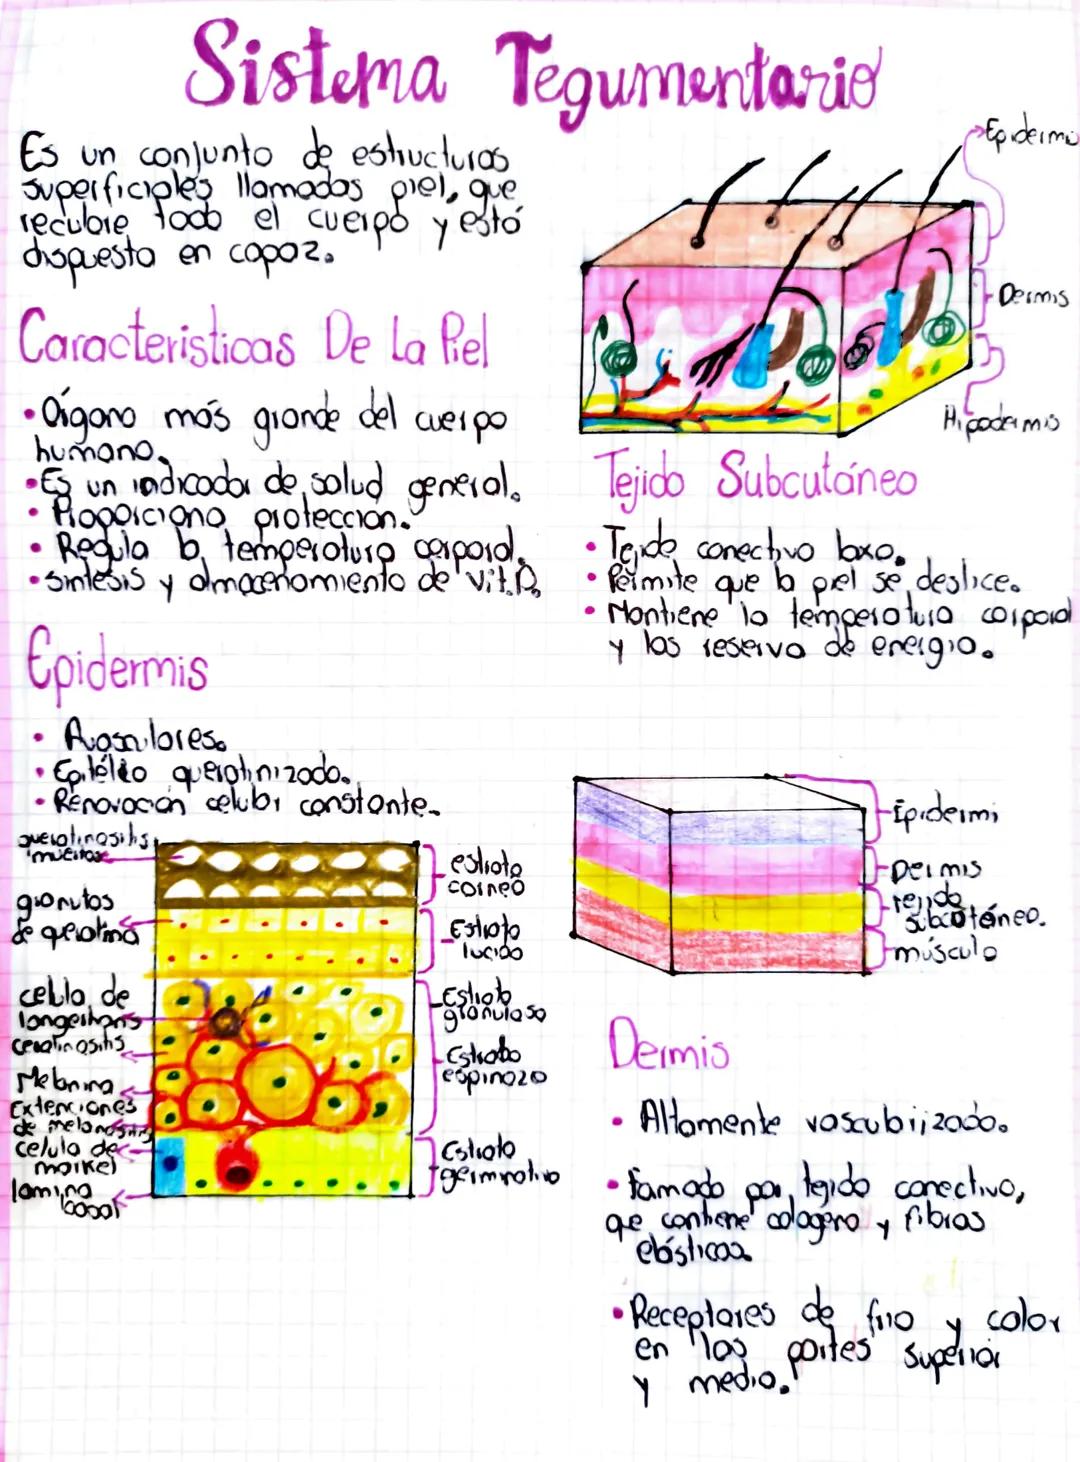 Sistema Tegumentario
Es un conjunto de estructuras
superficiales llamadas piel, que
recubre todo el cuerpo y está
dispuesta en capaz.
Epidermis
Dermis
Hipodermis
Caracteristicas De La Piel
•Órgano más grande del cuerpo
humano.
•Es un indicador de salud general.
• Proporciona protección.
• Regula la temperatura corporal.
•sintesis y almacenamiento de vit.D.
Tejido Subcutáneo
• Tejido conectivo laxo.
• Permite que la piel se deslice.
• Mantiene la temperatura corporal
y las reserva de energia.
Epidermis
• Avasculares.
• Epitélio queratinizado.
• Renovación celular constante.
queratinositis
muertos
granutos
de queratina
celula de
langerhans
ceratinositis
Melanina
Extenciones
de melanositis
celula de
morkel
lamina
basal
estrato
corneo
Estrato
lucido
Estrato
granuloso
Estrato
espinozo
Estrato
germinativo
Epidermi
Dermis
tejido
subcutáneo.
músculo
Dermis
• Altamente vascularizado.
• Famado por tejido conectivo,
que contiene colageno y fibras
elásticas.
•Receptores de frio y calor
en las partes superior
y medio.